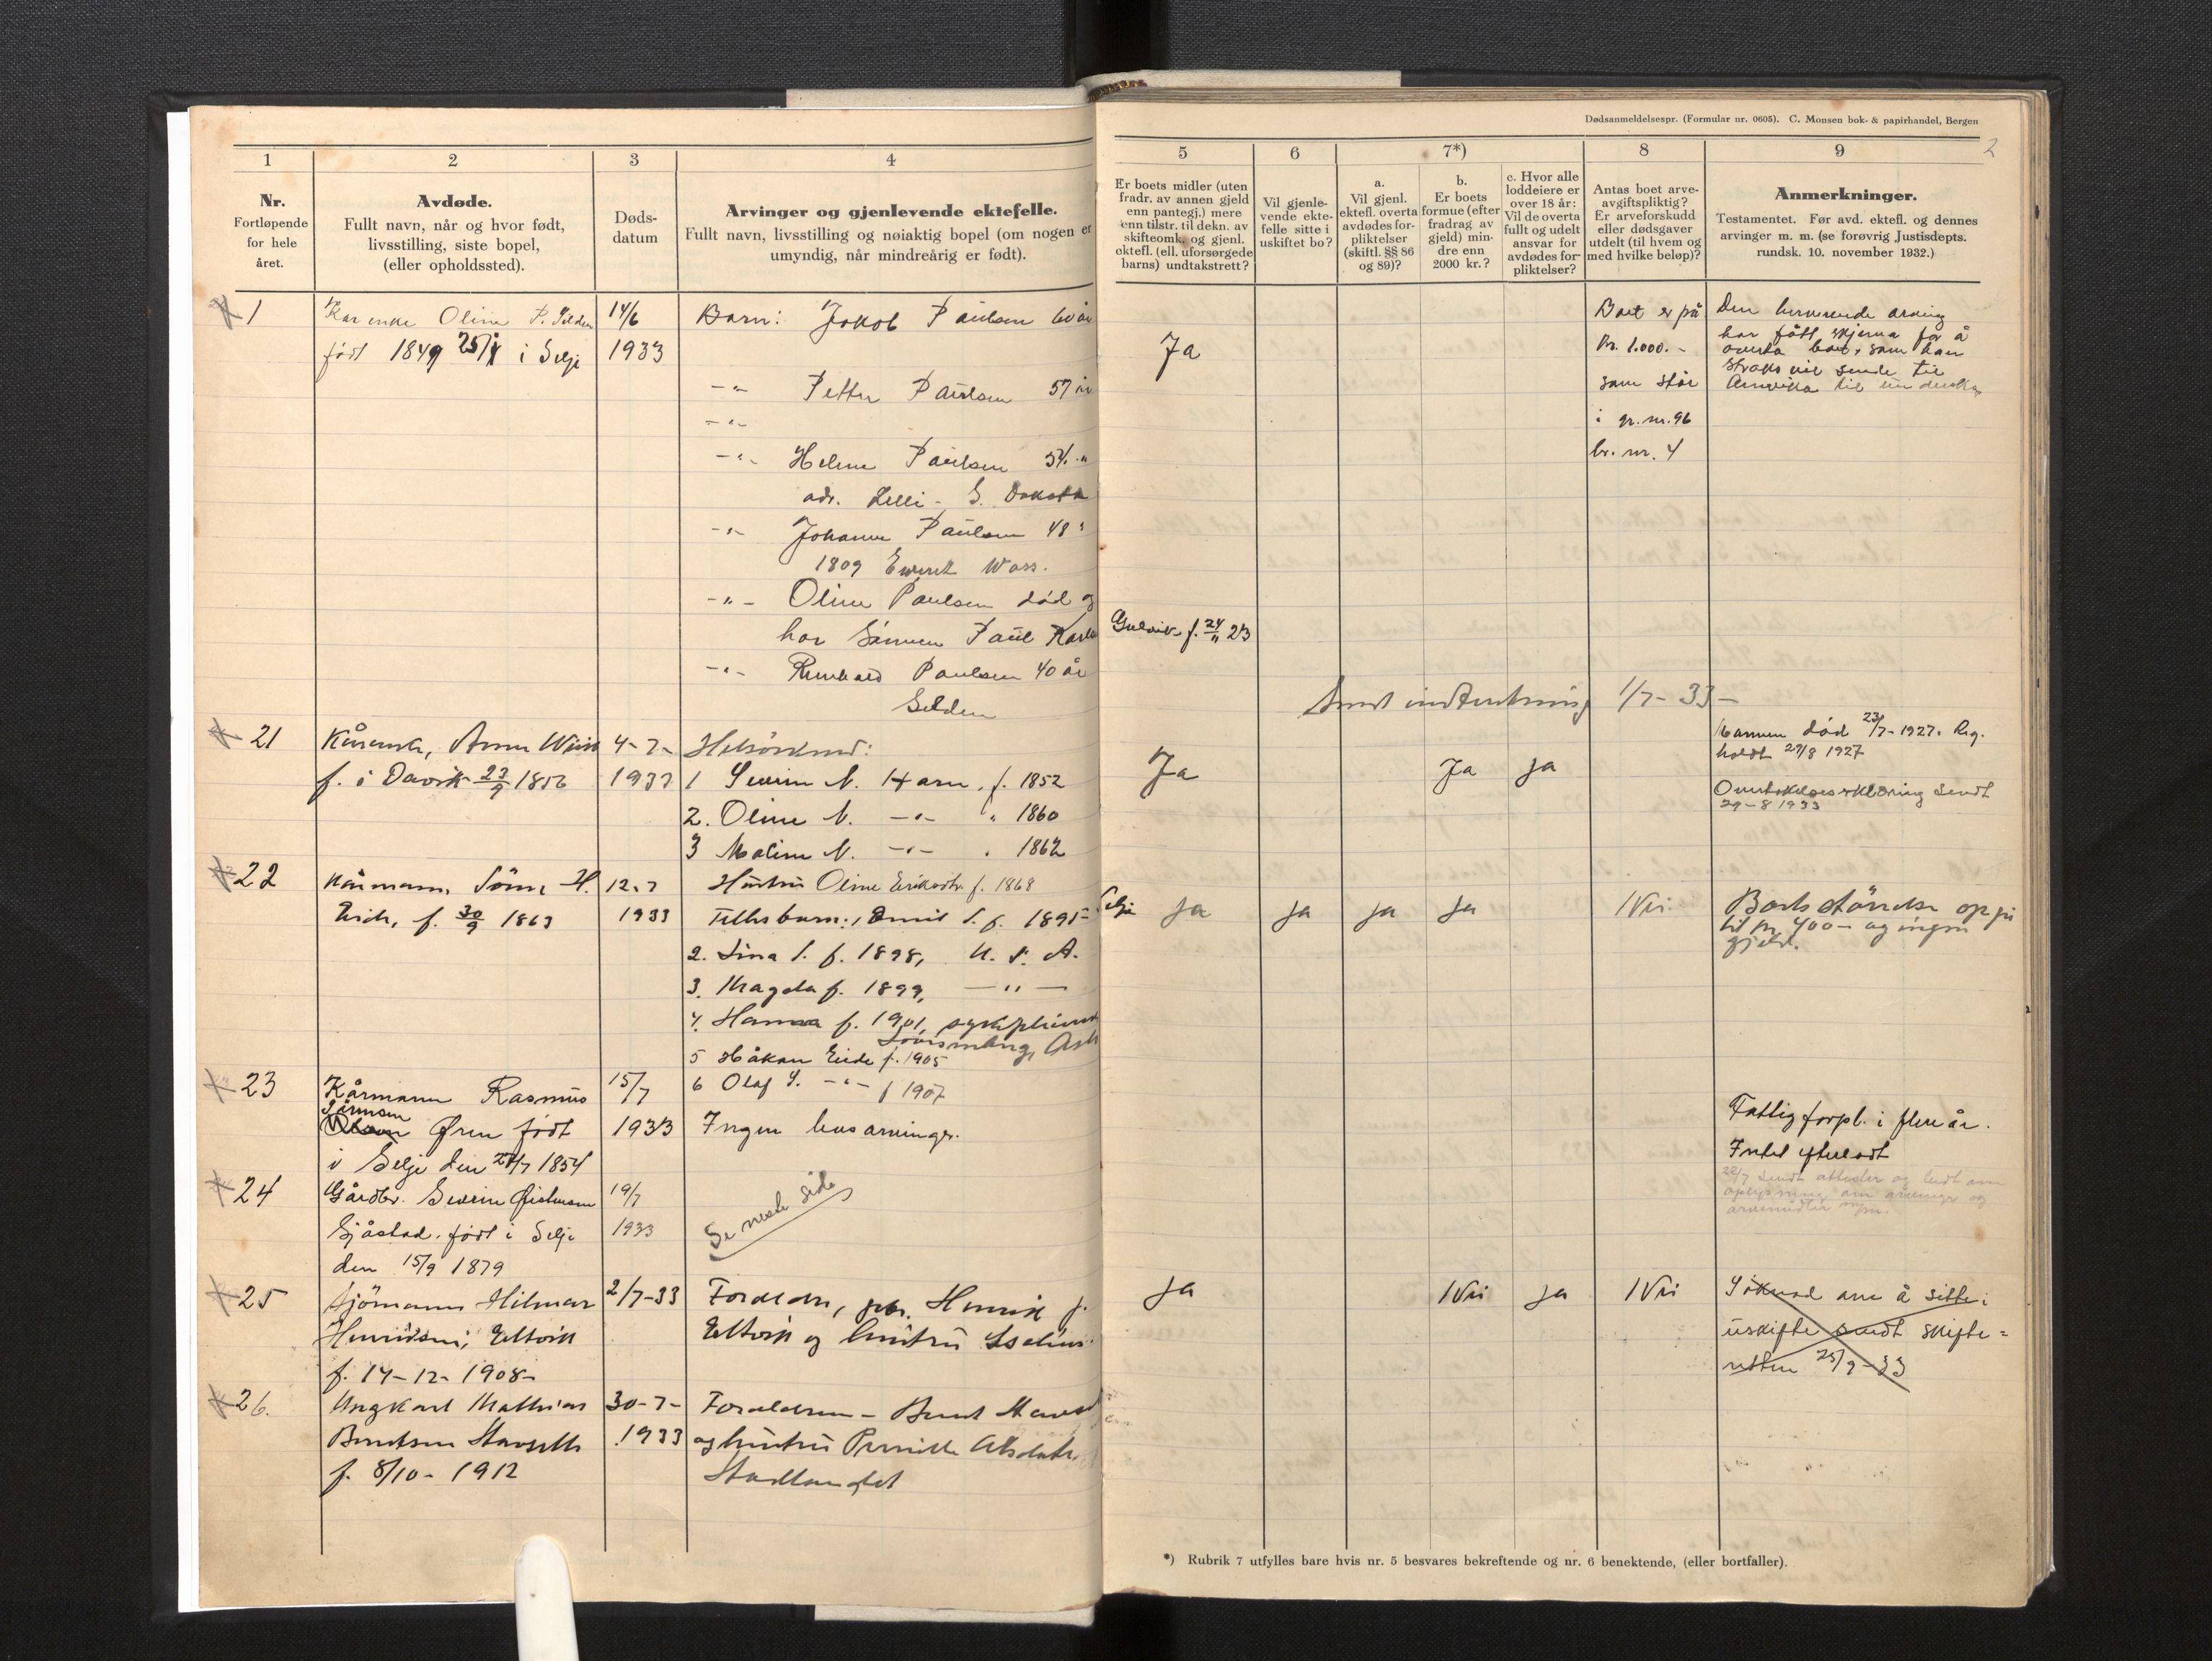 Dødsanmeldelsespr. (Formular nr. 0605). C. Monsen bok- & papirhandel, Bergen
2
1 2 3 4 5 6 7*) 8 9
Nr.
Fortløpende
for hele
året.
Avdøde.
Fullt navn, når og hvor født,
livsstilling, siste bopel,
(eller opholdssted).
Døds-
datum
Arvinger og gjenlevende ektefelle.
Fullt navn, livsstilling og nøiaktig bopel (om nogen er
umyndig, når mindreårig er født).
Er boets midler (uten
fradr. av annen gjeld
enn pantegj.) mere
enn tilstr. til dekn. av
skifteomk. og gjenl.
ektefl. (ell. uforsørgede
barns) undtakstrett?
Vil gjenle-
vende ekte-
felle sitte i
uskiftet bo?
a.
Vil gjenl.
ektefl. overta
avdødes for-
pliktelser
(skiftl. §§ 86
og 89)?
b.
Er boets
formue (efter
fradrag av
gjeld) min-
dre enn
2000 kr.?
c. Hvor alle
loddeiere er
over 18 år:
Vil de overta
fullt og udelt
ansvar for
avdødes for-
pliktelser?
Antas boet arve-
avgiftspliktig?
Er arveforskudd
eller dødsgaver
utdelt (til hvem og
med hvilke beløp)?
Anmerkninger.
Testamentet. Før avd. ektefl. og dennes
arvinger m. m. (se forøvrig Justisdepts.
rundsk. 10. november 1932.)
1
Kårenke Oline P.
født 1849 i Selje
14/6
1933
Barn: Jakob Paulsen 60 år
-"- Petter Paulsen 57 år
-"-
-"- Helene Paulsen 54 "
adr. S. Dakota
-"- Johanne Paulsen 48 "
1809 Wass.
-"- Oline Paulsen død og
har Sønnen Paul
f. 24/11 23
-"- Paulsen 40 år
Ja
Boet er på
kr. 1.000.-
som står
i gr. nr. 96
br. nr. 4
Den arving
har fått skjema for å
overta boet, som han
straks vil sende til
Amerika til
1/7-33-
21
Kårenk, Anna
f. i Davik 23/9 1856
4-7-
1933
Helsøskend:
1 Severin N. Harn, f. 1852
2. Oline N. -"- " 1860
3 Maline N. -"- " 1862
Ja
Ja
Ja
Mannen død 23/7-1927. Reg.
holdt 27/8 1927
Overtakelseserklæring sendt
29-8 1933
22
Kårmann, H.
f. 30/9 1863
12.7
1933
Hustru Oline f. 1868
Selje
Felles barn: 1 Emil S. f. 1895
2. Lina S. f. 1898, U. S. A.
3. Magda f. 1899, -"-
4. Hanna f. 1901,
5 Håkon Eide f. 1905
6 Olaf -"- f 1907
Ja
Ja
Ja
Ja
Nei
op på
til kr 400- og ingen
gjeld.
23
Kårmann Rasmus
Øren født
i Selje den 1854
15/7
1933
Ingen livsarvinger.
Fattigforpl. i flere år.
Intet efterladt
24
Gårdbr. Severin
Sjåstad. født i Selje
den 15/9 1879
19/7
1933
Se neste side
25
Sjömann Hilmar
Henriksen, Eltvik
f. 14-12-1908-
2/7-33
Foreldre, Henrik J.
Eltvik og hustru
Ja
Nei
Ja
Nei
Söknad om å sitte i
uskifte sendt skifte=
retten 25/9-33
26.
Ungkarl Mathias
Berntsen
f. 8/10-1912
30-7-
1933
Foreldrene - Bernt
og hustru Pernille
Stadlandet
*) Rubrik 7 utfylles bare hvis nr. 5 besvares bekreftende og nr. 6 benektende, (eller bortfaller).